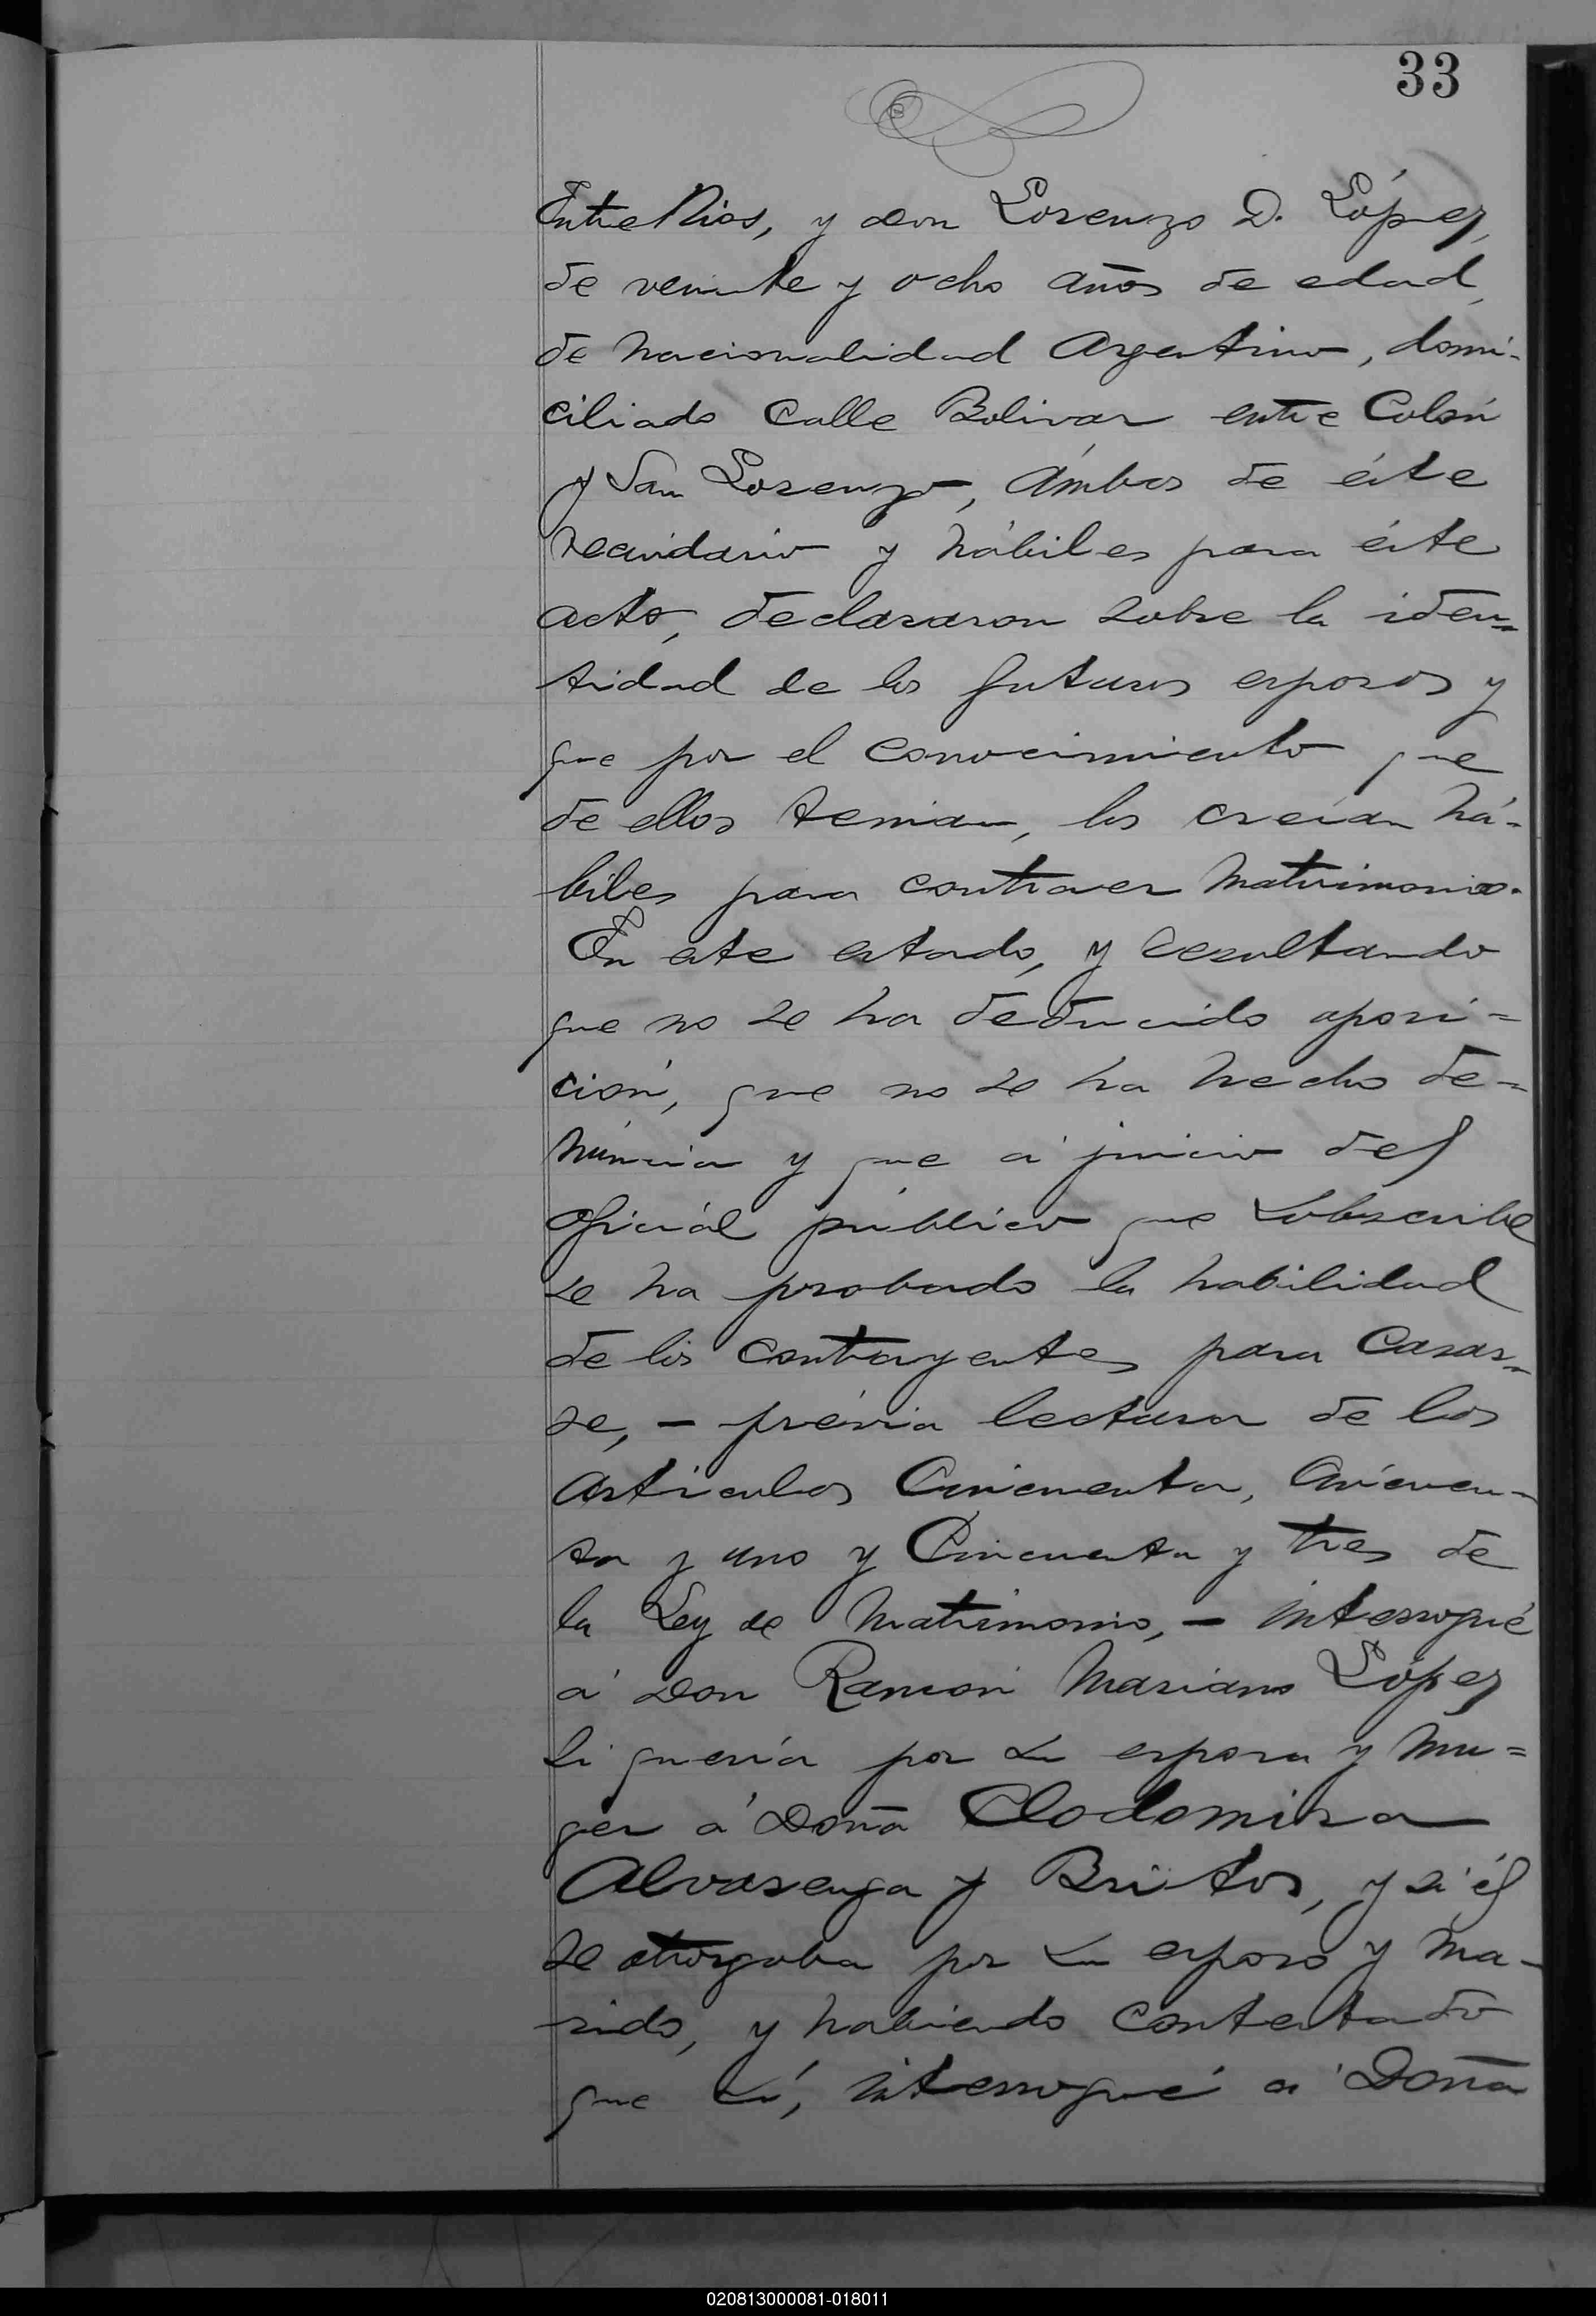 33
Entre Rios, y don Lorenzo D. López,
de veinte y ocho años de edad,
de nacionalidad Argentino, domi-
ciliado Calle Bolivar entre Colón
y San Lorenzo, ámbos de éste
vecindario y hábiles para éste
acto, declararon sobre la iden=
tidad de los futuros esposos y
que por el conocimiento que
de ellos tenian, los creían há-
biles para contraer Matrimonio.
En este estado, y resultando
que no se ha deducido oposi=
ción, que no se ha hecho de=
núncia y que á juicio del
Oficiál público que subscribe
se ha probado la habilidad
de los contrayentes para casar=
se, – prévia lectura de los
artículos Cincuenta, Cincuen-
ta y uno y Cincuenta y tres de
la Ley de Matrimonio, – interrogué
á Don Ramón Mariano López
si quería por su esposa y mu=
ger á Doña Clodomira
Alvarenga y Britos, y si él
se otorgaba por su esposo y ma-
rido, y habiendo contestado
que sí, interrogué á Doña
020813000081-018011